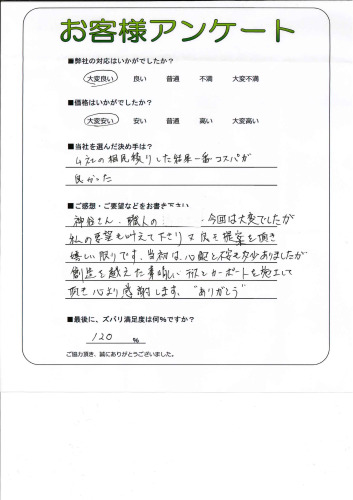 お客様アンケート
■弊社の対応はいかがでしたか?
大変良い 良い 普通 不満 大変不満
■価格はいかがでしたか?
大変安い 安い 普通 高い 大変高い
■当社を選んだ決め手は?
ム社の相見積りした結果一番コスパが
良かった
■ご感想・ご要望などをお書き下さい
神谷さん、職人の 今回は大変でしたが
私の要望も叶えて下さり 又良き提案を頂き
嬉しい限りです。当初は心配と不安も多少ありましたが
創造を越えた素晴しいテラスとカーポートを施工して
頂き心より感謝します。"ありがとう"
■最後に、ズバリ満足度は何%ですか?
120 %
ご協力頂き、誠にありがとうございました。